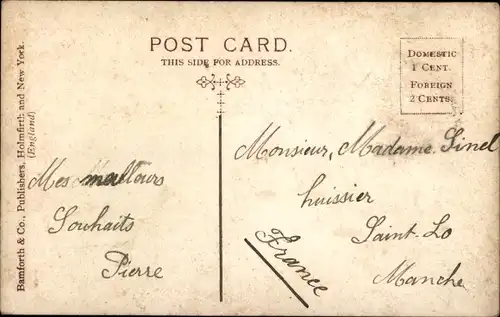 POST CARD.
THIS SIDE FOR ADDRESS.
DOMESTIC
1 CENT.
FOREIGN
2 CENTS.
Bamforth & Co., Publishers, Holmfirth and New York.
(England)
Mes meilleurs
Souhaits
Pierre
Monsieur, Madame Sinel
huissier
Saint-Lo
Manche
France